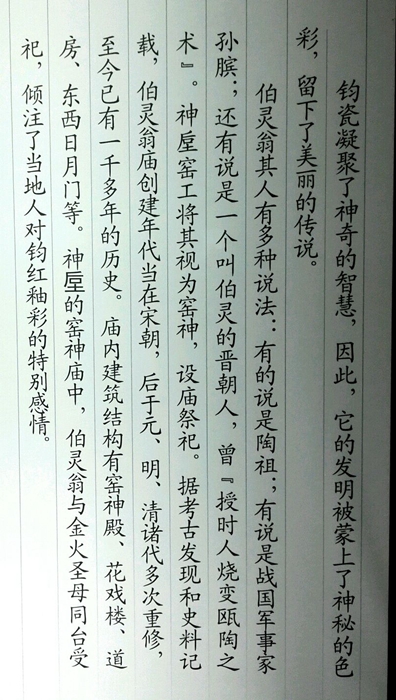 钧瓷凝聚了神奇的智慧，因此，它的发明被蒙上了神秘的色
彩，留下了美丽的传说。
伯灵翁其人有多种说法：有的说是陶祖；有说是战国军事家
孙膑；还有说是一个叫伯灵的晋朝人，曾『授时人烧变瓯陶之
术』。神垕窑工将其视为窑神，设庙祭祀。据考古发现和史料记
载，伯灵翁庙创建年代当在宋朝，后于元、明、清诸代多次重修，
至今已有一千多年的历史。庙内建筑结构有窑神殿、花戏楼、道
房、东西日月门等。神垕的窑神庙中，伯灵翁与金火圣母同台受
祀，倾注了当地人对钧红釉彩的特别感情。